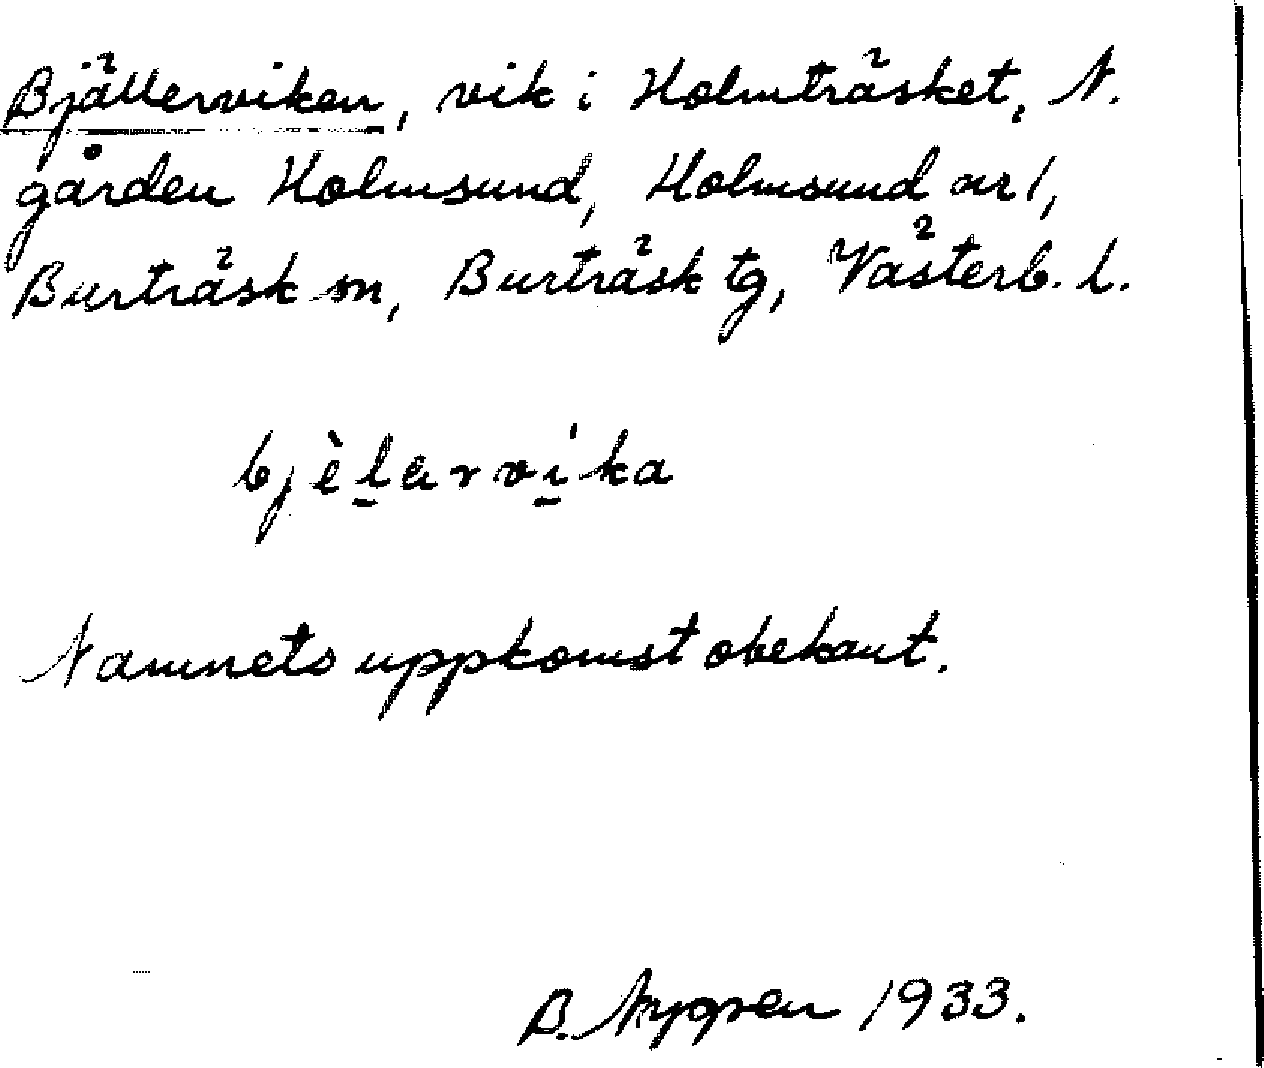 Bjällerviken, vik i Holmträsket, N.
gården Holmsund, Holmsund nr 1,
Burträsk sn, Burträsk tg, Västerb. l.
bjèlarvíka
Namnets uppkomst obekant.
B. Nygren 1933.